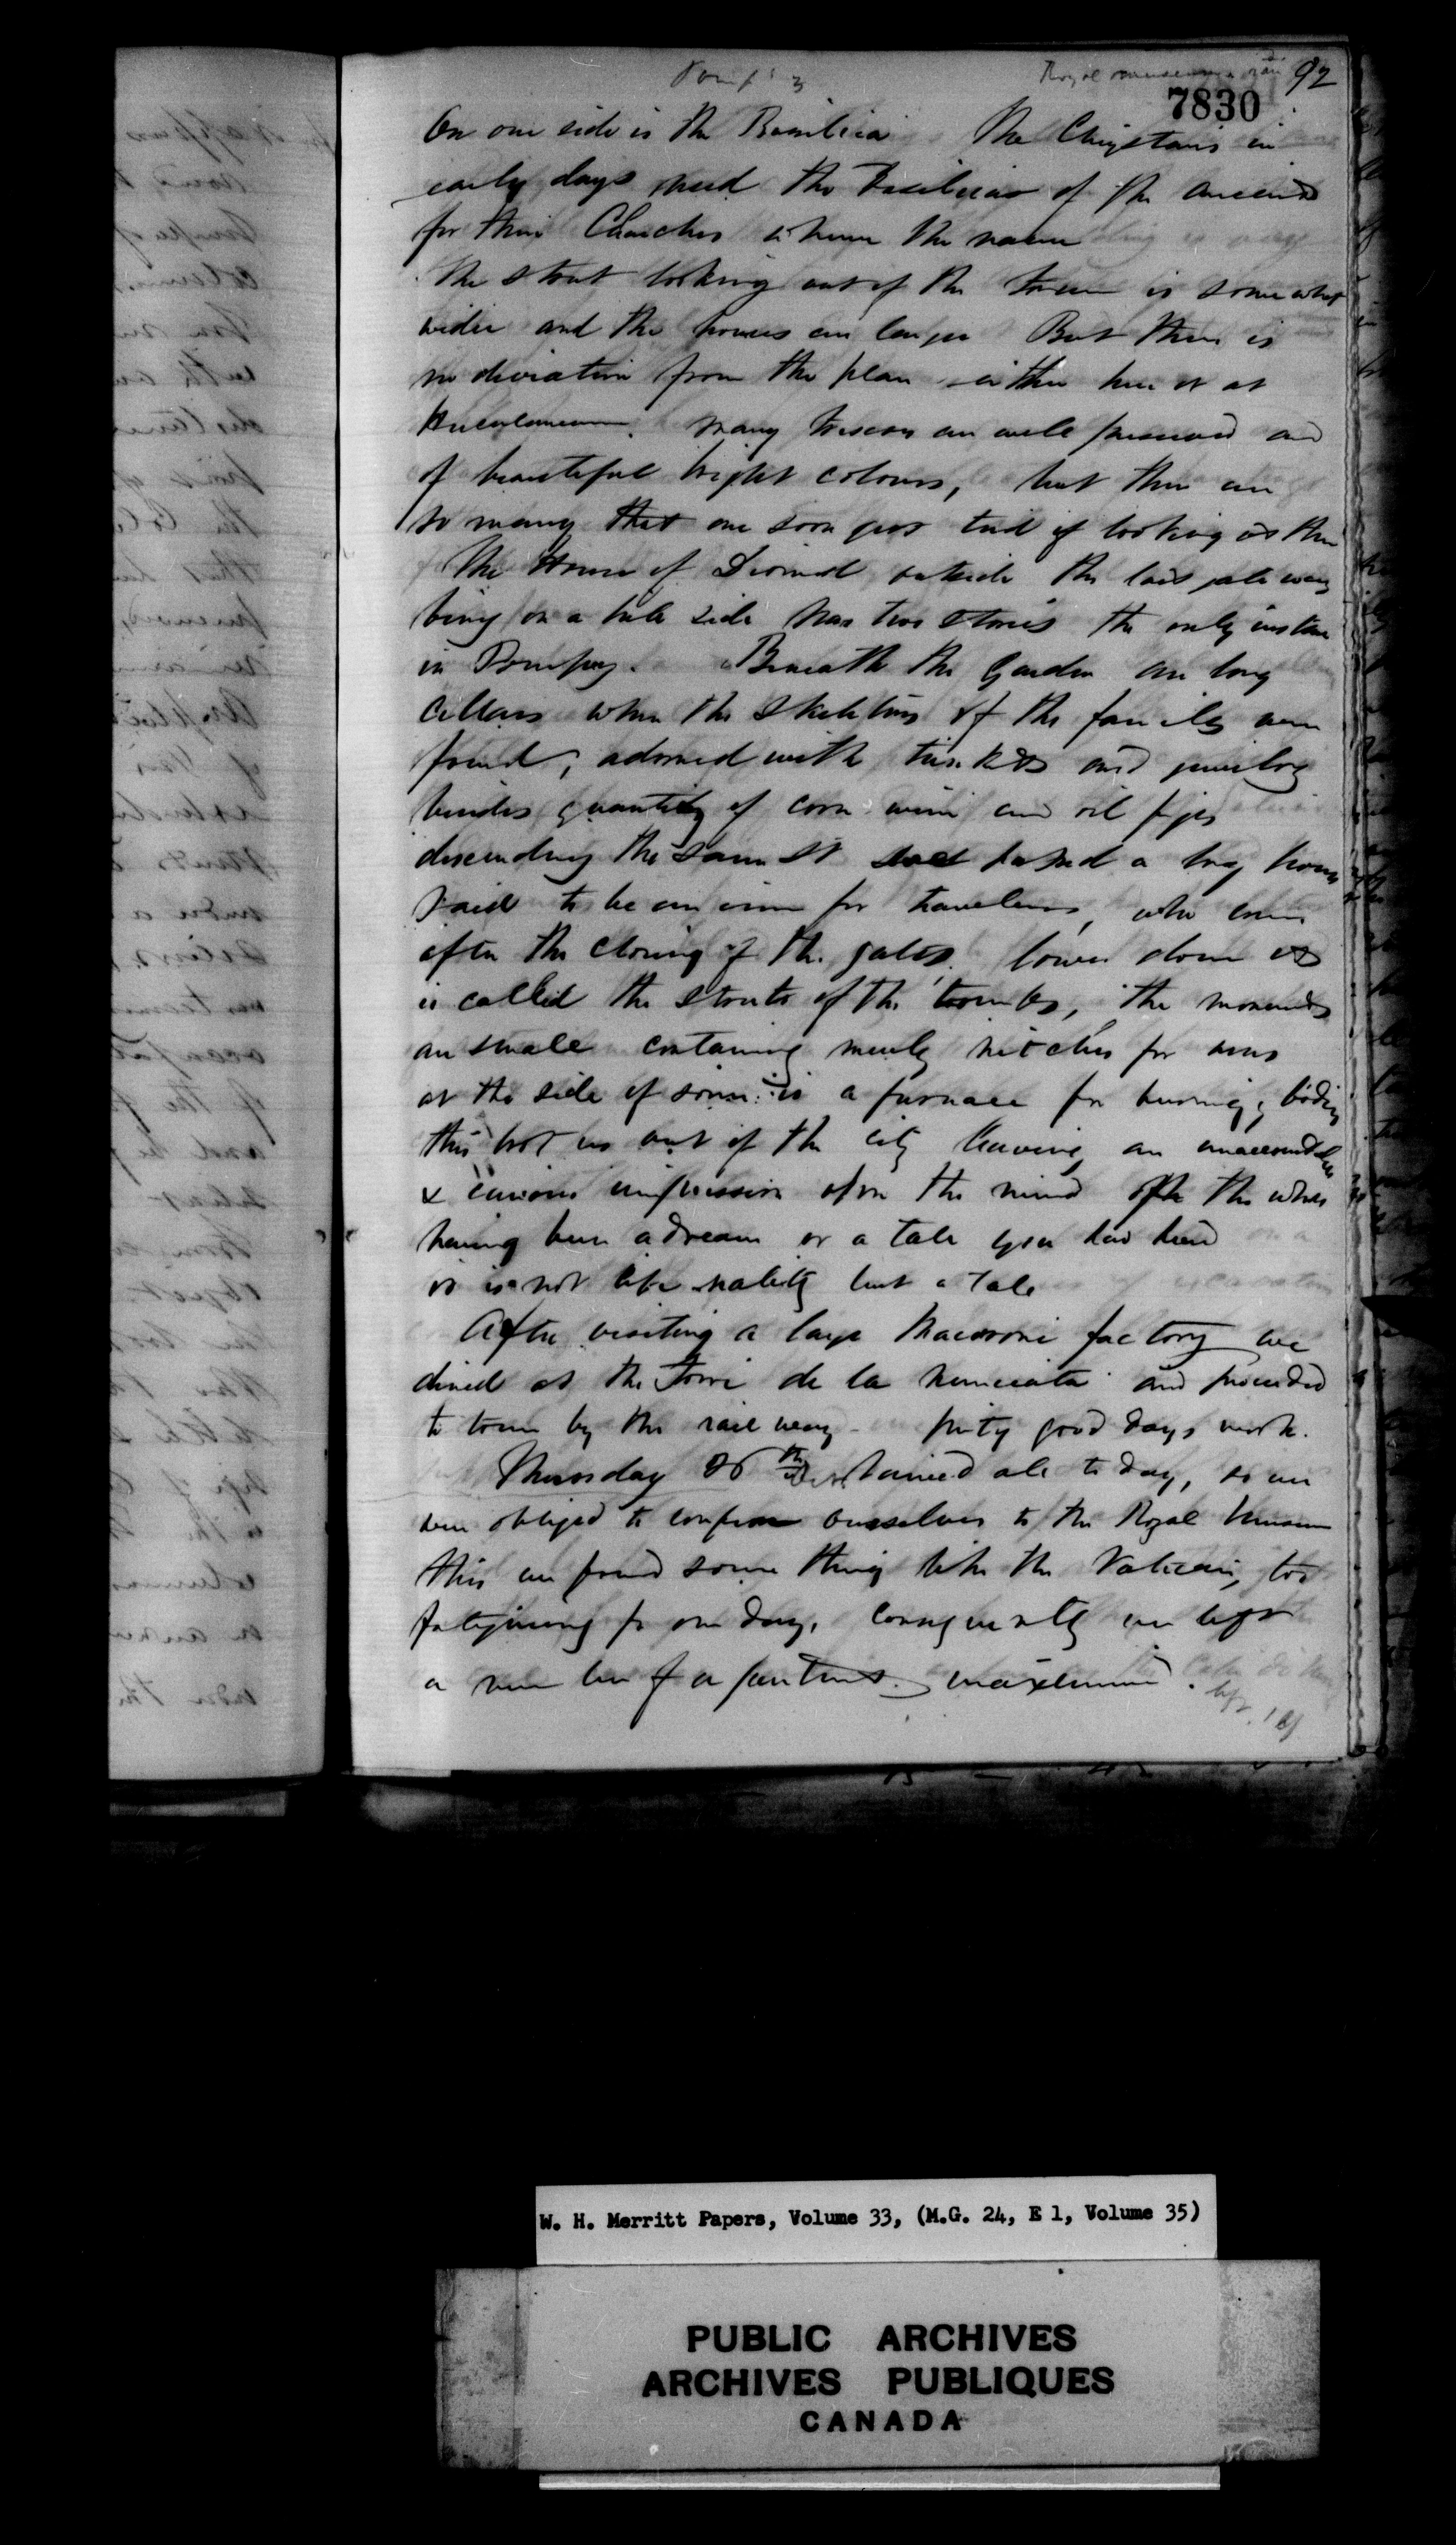 92
7830
On one side is the Basilica The Christans in
early days used the Basilicas of the ancients
for their Churches & hence the name
The street looking out of the town is somewhat
wider and the houses are larger But there is
no deviation from the plan either here or at
Herculaneum. Many frescoes are well preserved and
of beautiful bright colours, but there are
so many that one soon gets tired of looking at them
The House of Diomed outside the last gate way
being on a hill side has two stories the only instance
in Pompey. Beneath the Garden are long
Cellars where the skeletons of the family were
found, adorned with trinkets and jewelry
besides quantity of corn wine and oil
descending the same St passed a long house
said to be an inn for travelers, who came
after the closing of the gates. lower down it
is called the Street of the tombs, the monuments
are small containing merely nitches for urns
at the side of some is a furnace for burning bodies
this took us out of the city leaving an unaccountable
& curious impression upon the mind of the whole
having been a dream or a tale you had heard
it is not like reality but a tale
After visiting a large Macaroni factory we
dined at the Torre de la Nunciata and proceeded
to town by the rail way pretty good days work.
Thursday 26th Rained all to day, so we
were obliged to confine ourselves to the Royal Museum
this we found some thing like the Vatican, too
fatiguing for one day, consequently we left
a number of apartments unexamined.
W. H. Merritt Papers, Volume 33, (M.G. 24, E 1, Volume 35)
PUBLIC ARCHIVES
ARCHIVES PUBLIQUES
CANADA